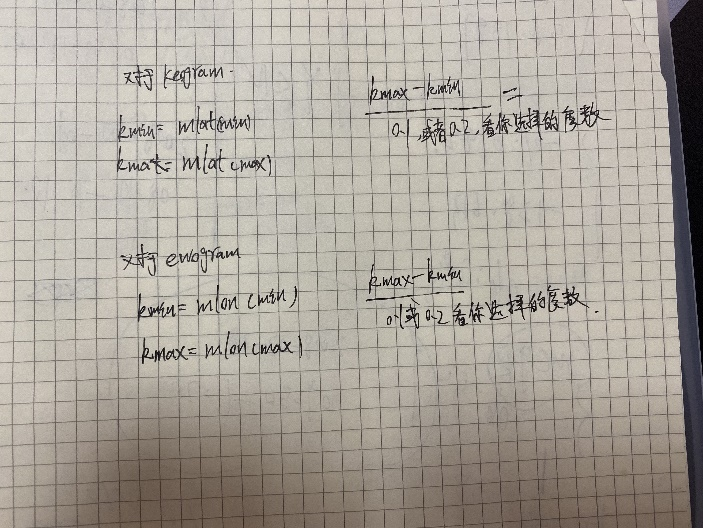 对于 keogram.
kmin = mlat(min)
kmax = mlat(max)
kmax - kmin =
0.1 或者 0.2, 看你选择的度数
对于 ewogram
kmin = mlon(min)
kmax = mlon(max)
kmax - kmin
0.1 或 0.2 看你选择的度数.